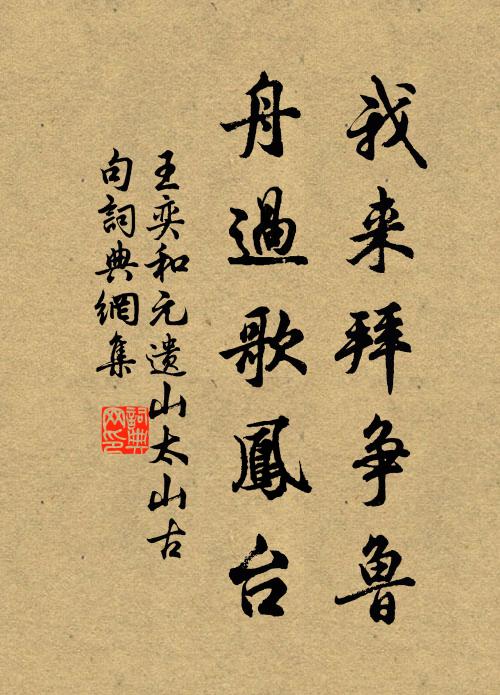 我来拜争魯
舟過歌鳳台
王奕和元遗山太山古
句詞典網集
詞典
网印